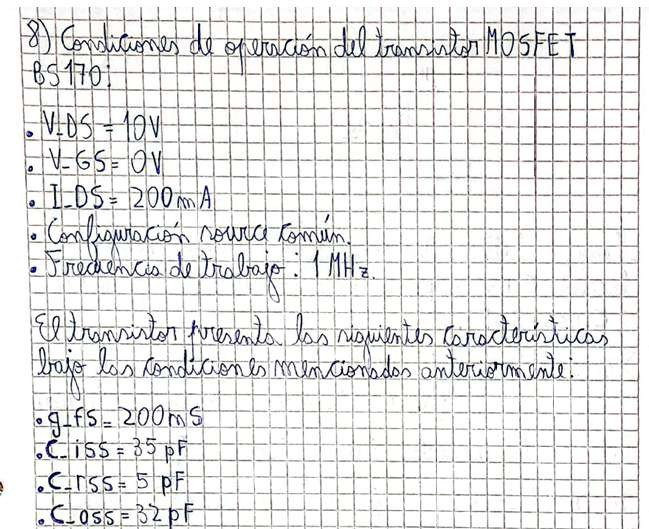 8) Condiciones de operación del transistor MOSFET
BS170:
• V_DS = 10V
• V_GS = 0V
• I_DS = 200mA
• Configuración source común.
• Frecuencia de trabajo: 1 MHz.
El transistor presenta las siguientes características
bajo las condiciones mencionadas anteriormente:
• g_fs = 200mS
• C_iss = 35 pF
• C_rss = 5 pF
• C_oss = 32 pF